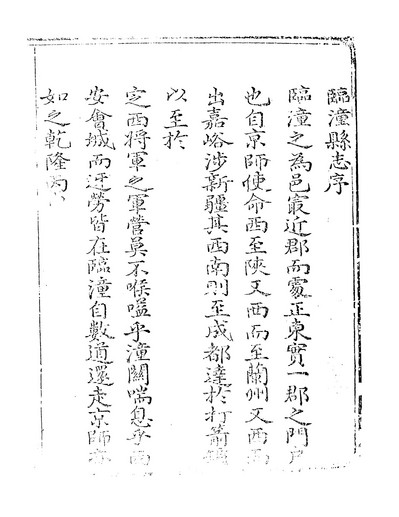 臨潼縣志序
臨潼之為邑寂近郡而處正東實一郡之門戶
也自京師使命西至陝又西而至蘭州又西而
出嘉峪涉新疆其西南則至成都達於打箭
以至於
定西將軍之軍營莫不喉嗌乎潼關喘息乎西
安會城而迓勞皆在臨潼自數道還走京師亦
如之乾隆丙